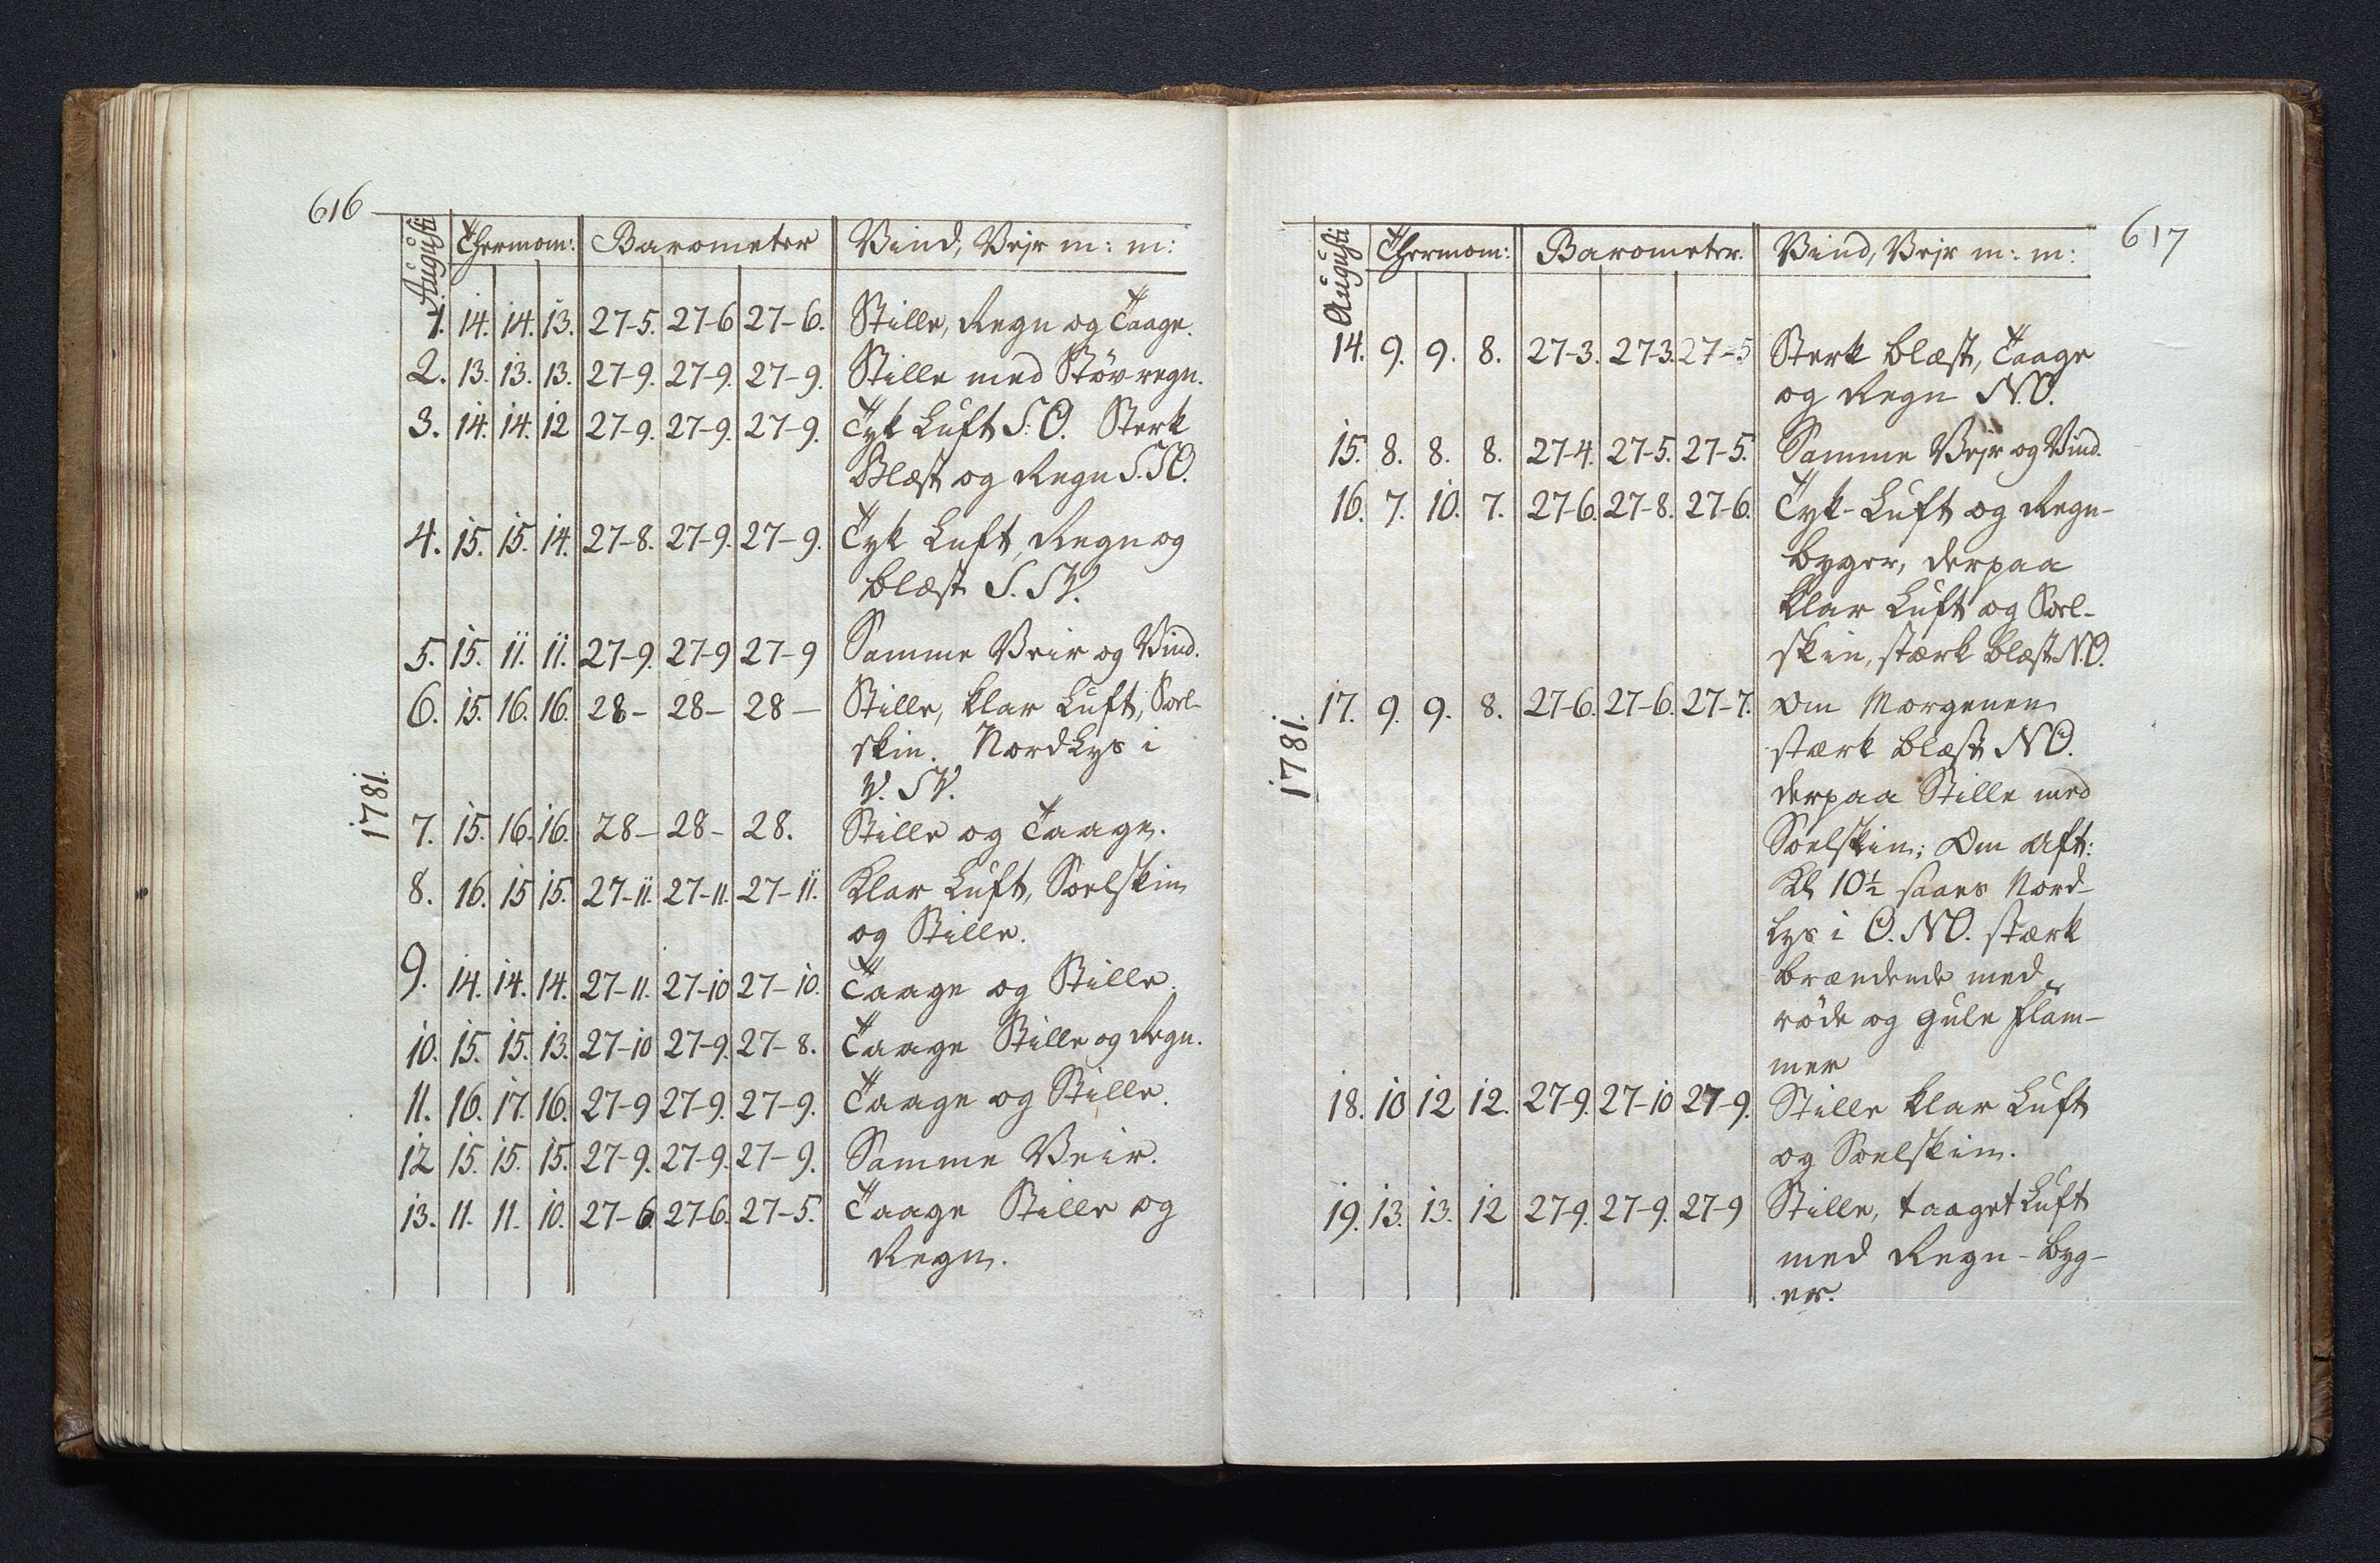 616
Augusti Thermom: Barometer Vind, Vejr m: m:
1. 14. 14. 13. 27-5. 27-6 27-6. Stille, Regn og Taage.
2. 13. 13. 13. 27-9. 27-9. 27-9. Stille med Støv-regn.
3. 14. 14. 12 27-9. 27-9. 27-9. Tyk Luft S.O. Sterk
Blæst og Regn S.SO.
4. 15. 15. 14. 27-8. 27-9. 27-9. Tyk Luft, Regn og
blæst S.SV.
5. 15. 11. 11. 27-9. 27-9 27-9 Samme Veir og Vind.
6. 15. 16. 16. 28- 28- 28- Stille, klar Luft, Soel-
skin. NordLys i
V.SV.
1781.
7. 15. 16. 16. 28- 28- 28. Stille og Taage.
8. 16. 15 15. 27-11. 27-11. 27-11. Klar Luft, Soelskin
og Stille.
9. 14. 14. 14. 27-11. 27-10 27-10. Taage og Stille.
10. 15. 15. 13. 27-10 27-9. 27-8. Taage Stille og Regn.
11. 16. 17. 16. 27-9 27-9. 27-9. Taage og Stille.
12 15. 15. 15. 27-9. 27-9. 27-9. Samme Veir.
13. 11. 11. 10. 27-6 27-6. 27-5. Taage Stille og
Regn.
617
Augusti Thermom: Barometer. Vind, Vejr m: m:
14. 9. 9. 8. 27-3. 27-3. 27-5 Sterk blæst, Taage
og Regn N.O.
15. 8. 8. 8. 27-4. 27-5. 27-5. Samme Vejr og Vind.
16. 7. 10. 7. 27-6. 27-8. 27-6. Tyk-Luft og Regn-
byger, derpaa
klar Luft og Soel-
skin, stærk blæst N.O.
1781.
17. 9. 9. 8. 27-6. 27-6. 27-7. Om Morgenen
stærk blæst NO.
derpaa Stille med
Soelskin; Om Aft:
Kl 10½ saaes Nord-
Lys i O.NO. stærk
brændende med
røde og gule flam-
mer
18. 10 12 12. 27-9. 27-10 27-9. Stille klar Luft
og Soelskin.
19. 13. 13. 12 27-9. 27-9. 27-9 Stille, taaget Luft
med Regn-byg-
er.